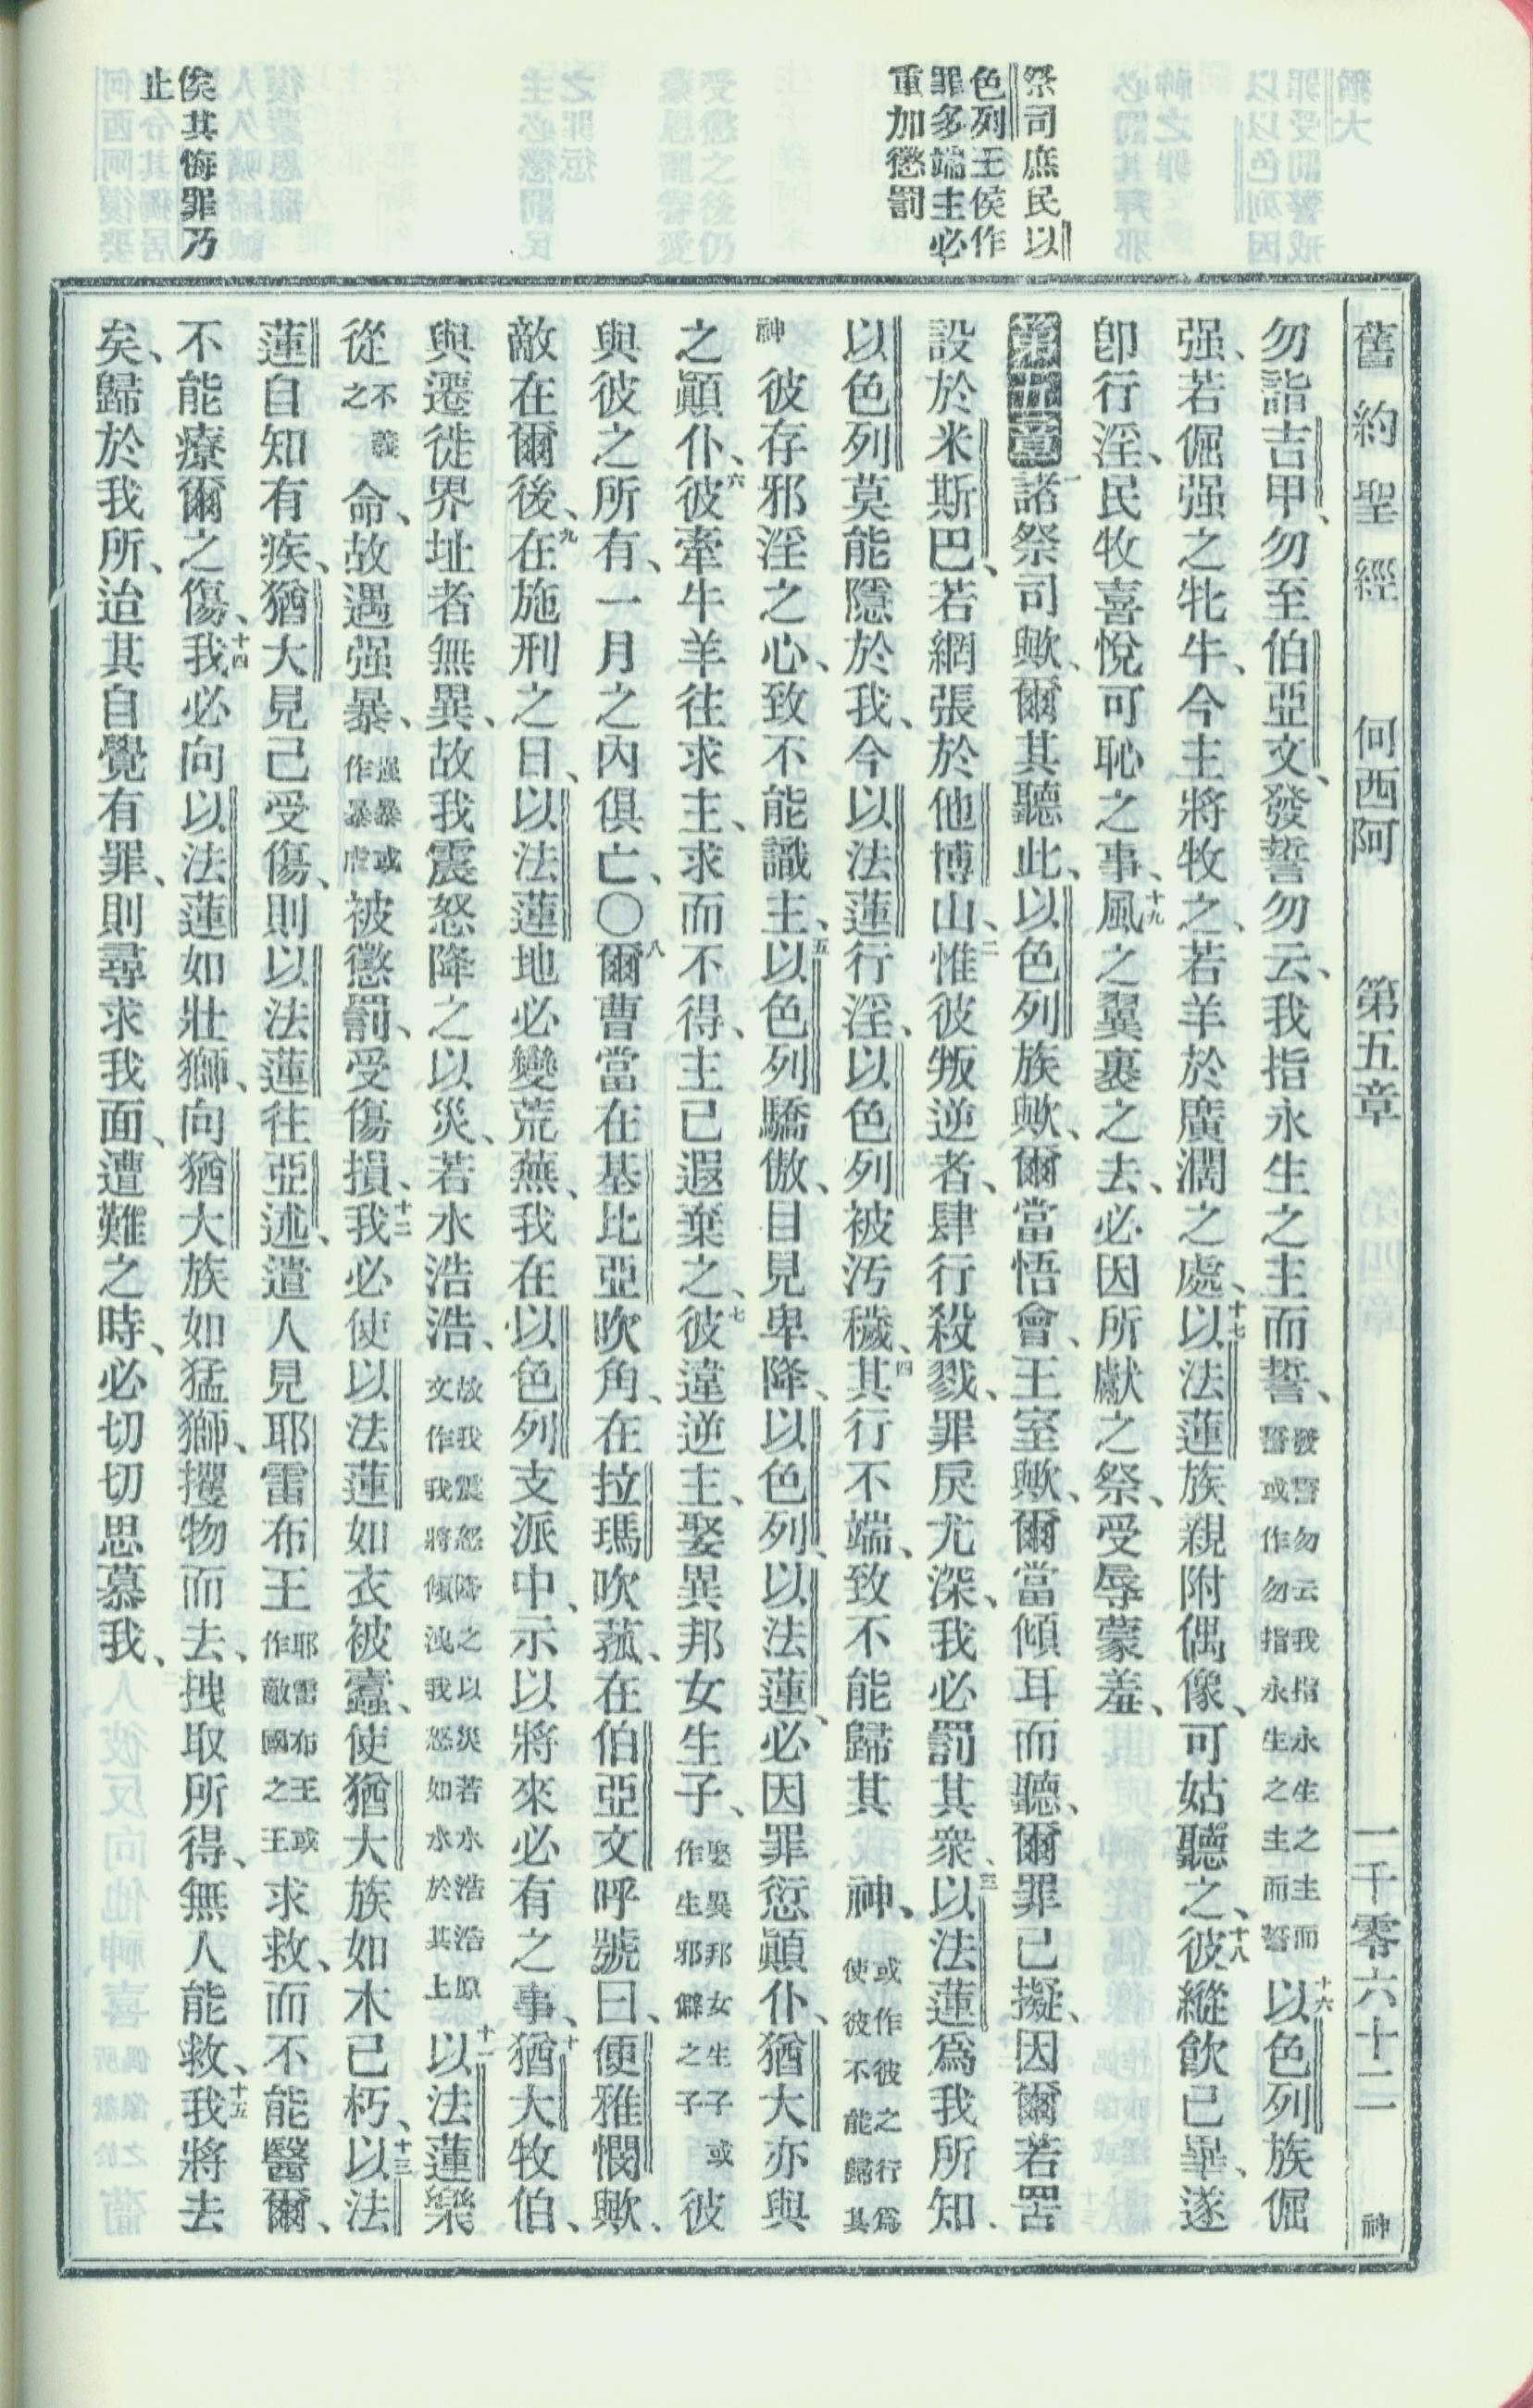 舊約聖經 何西阿 第五章 一千零六十二 神
祭司庶民以
色列王侯作
罪多端主必
重加懲罰
俟其悔罪乃
止
勿詣吉甲、勿至伯亞文、發誓勿云、我指永生之主而誓、發誓勿云我指永生之主而誓或作勿指永生之主而誓十六以色列族倔
强、若倔强之牝牛、今主將牧之、若羊於廣濶之處、十七以法蓮族親附偶像、可姑聽之、十八彼縱飲已畢、遂
卽行淫、民牧喜悅可恥之事、十九風之翼裹之去、必因所獻之祭、受辱蒙羞、
第五章一諸祭司歟、爾其聽此、以色列族歟、爾當悟會、王室歟、爾當傾耳而聽、爾罪已擬、因爾若罟
設於米斯巴、若網張於他博山、二惟彼叛逆者、肆行殺戮、罪戾尤深、我必罰其衆、三以法蓮爲我所知、
以色列莫能隱於我、今以法蓮行淫、以色列被汚穢、四其行不端、致不能歸其 神、或作彼之行爲使彼不能歸其
神彼存邪淫之心、致不能識主、五以色列驕傲、目見卑降、以色列、以法蓮、必因罪愆顚仆、猶大亦與
之顚仆、六彼牽牛羊往求主、求而不得、主已遐棄之、七彼違逆主、娶異邦女生子、娶異邦女生子或作生邪僻之子彼
與彼之所有、一月之內俱亡、○八爾曹當在基比亞吹角、在拉瑪吹菰、在伯亞文呼號曰、便雅憫歟、
敵在爾後、九在施刑之日、以法蓮地必變荒蕪、我在以色列支派中、示以將來必有之事、十猶大牧伯、
與遷徙界址者無異、故我震怒降之以災、若水浩浩、故我震怒降之以災若水浩浩原文作我將傾洩我怒如水於其上十一以法蓮樂
從不義之命、故遇强暴、强暴或作暴虐被懲罰、受傷損、十二我必使以法蓮如衣被蠹、使猶大族如木已朽、十三以法
蓮自知有疾、猶大見己受傷、則以法蓮往亞述、遣人見耶雷布王耶雷布王或作敵國之王求救、而不能醫爾、
不能療爾之傷、十四我必向以法蓮如壯獅、向猶大族如猛獅、攫物而去、拽取所得、無人能救、十五我將去
矣、歸於我所、迨其自覺有罪、則尋求我面、遭難之時、必切切思慕我、